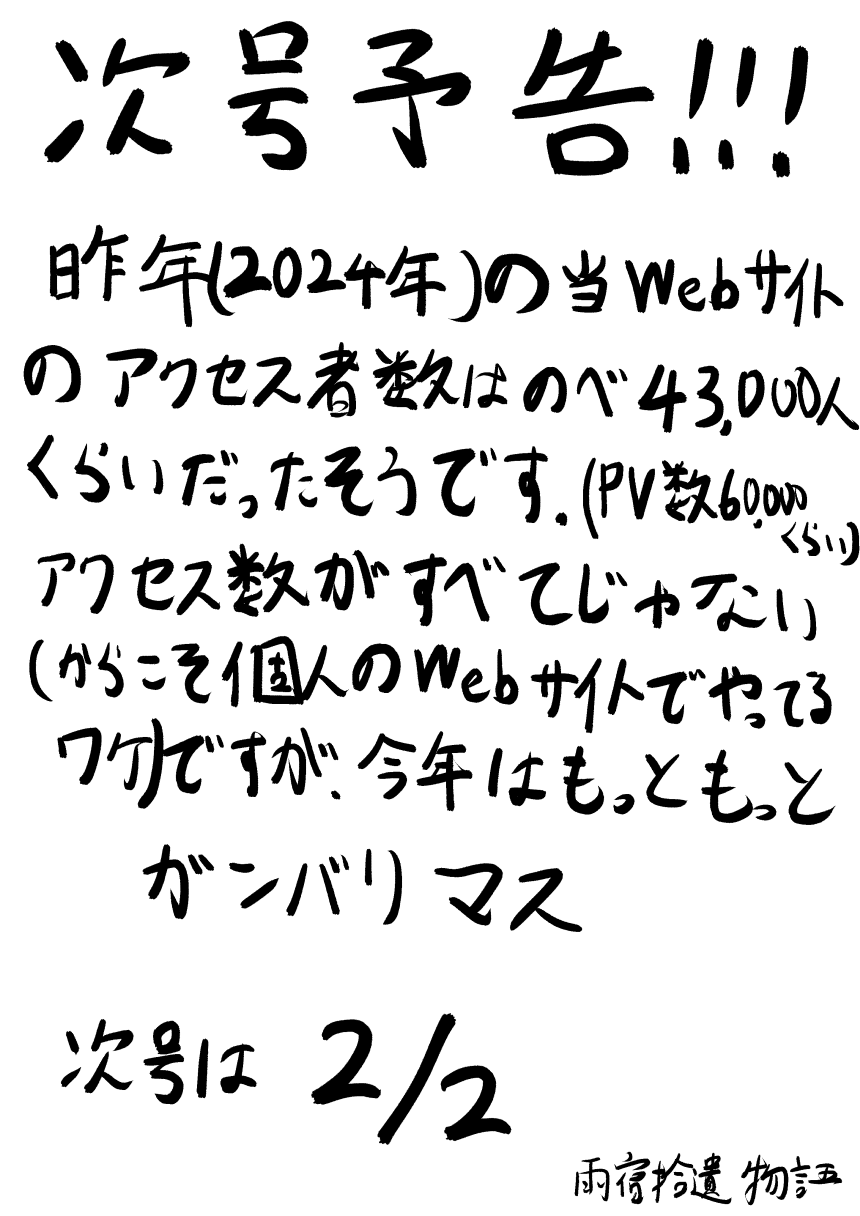 次号予告!!!
昨年(2024年)の当Webサイト
のアクセス者数はのべ43,000人
くらいだったそうです.(PV数60,000
くらい)
アクセス数がすべてじゃない
(からこそ個人のWebサイトでやってる
ワケ)ですが、今年はもっともっと
ガンバリマス
次号は 2/2
雨宿拾遺物語